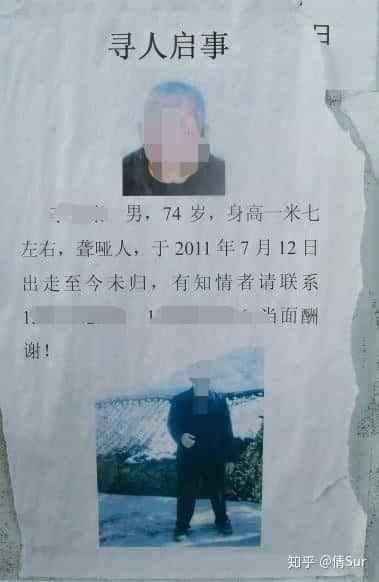 寻人启事
男，74 岁，身高一米七
左右，聋哑人，于 2011 年 7 月 12 日
出走至今未归，有知情者请联系
1 1 当面酬
谢！
知乎 @倩Sur